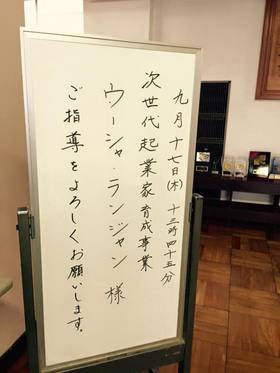 九月十七日(木) 十三時四十五分
次世代起業家育成事業
ウーシャ・ランジャン 様
ご指導をよろしくお願いします。